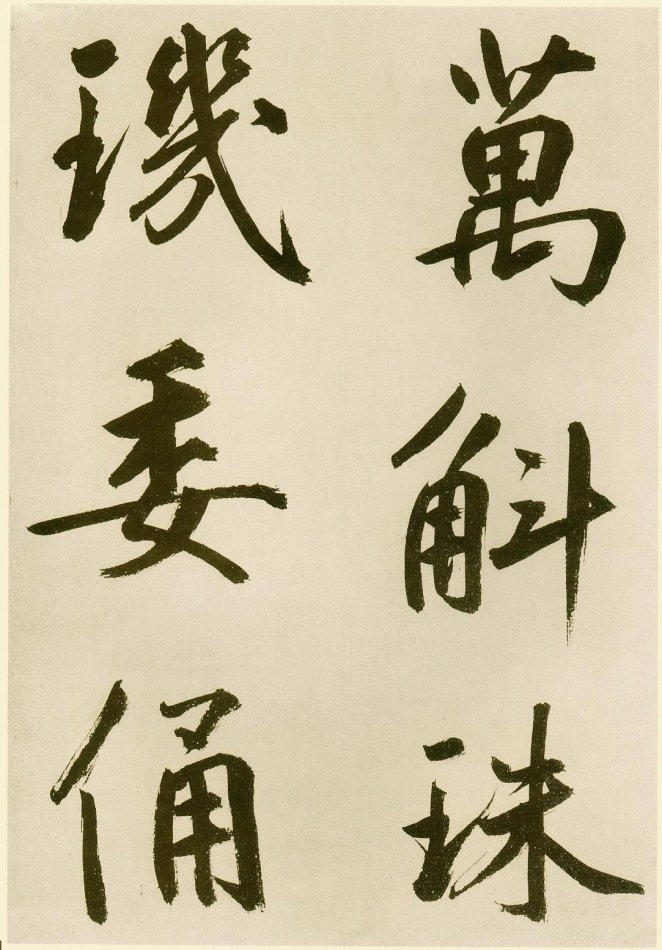 萬斛珠
璣委俑